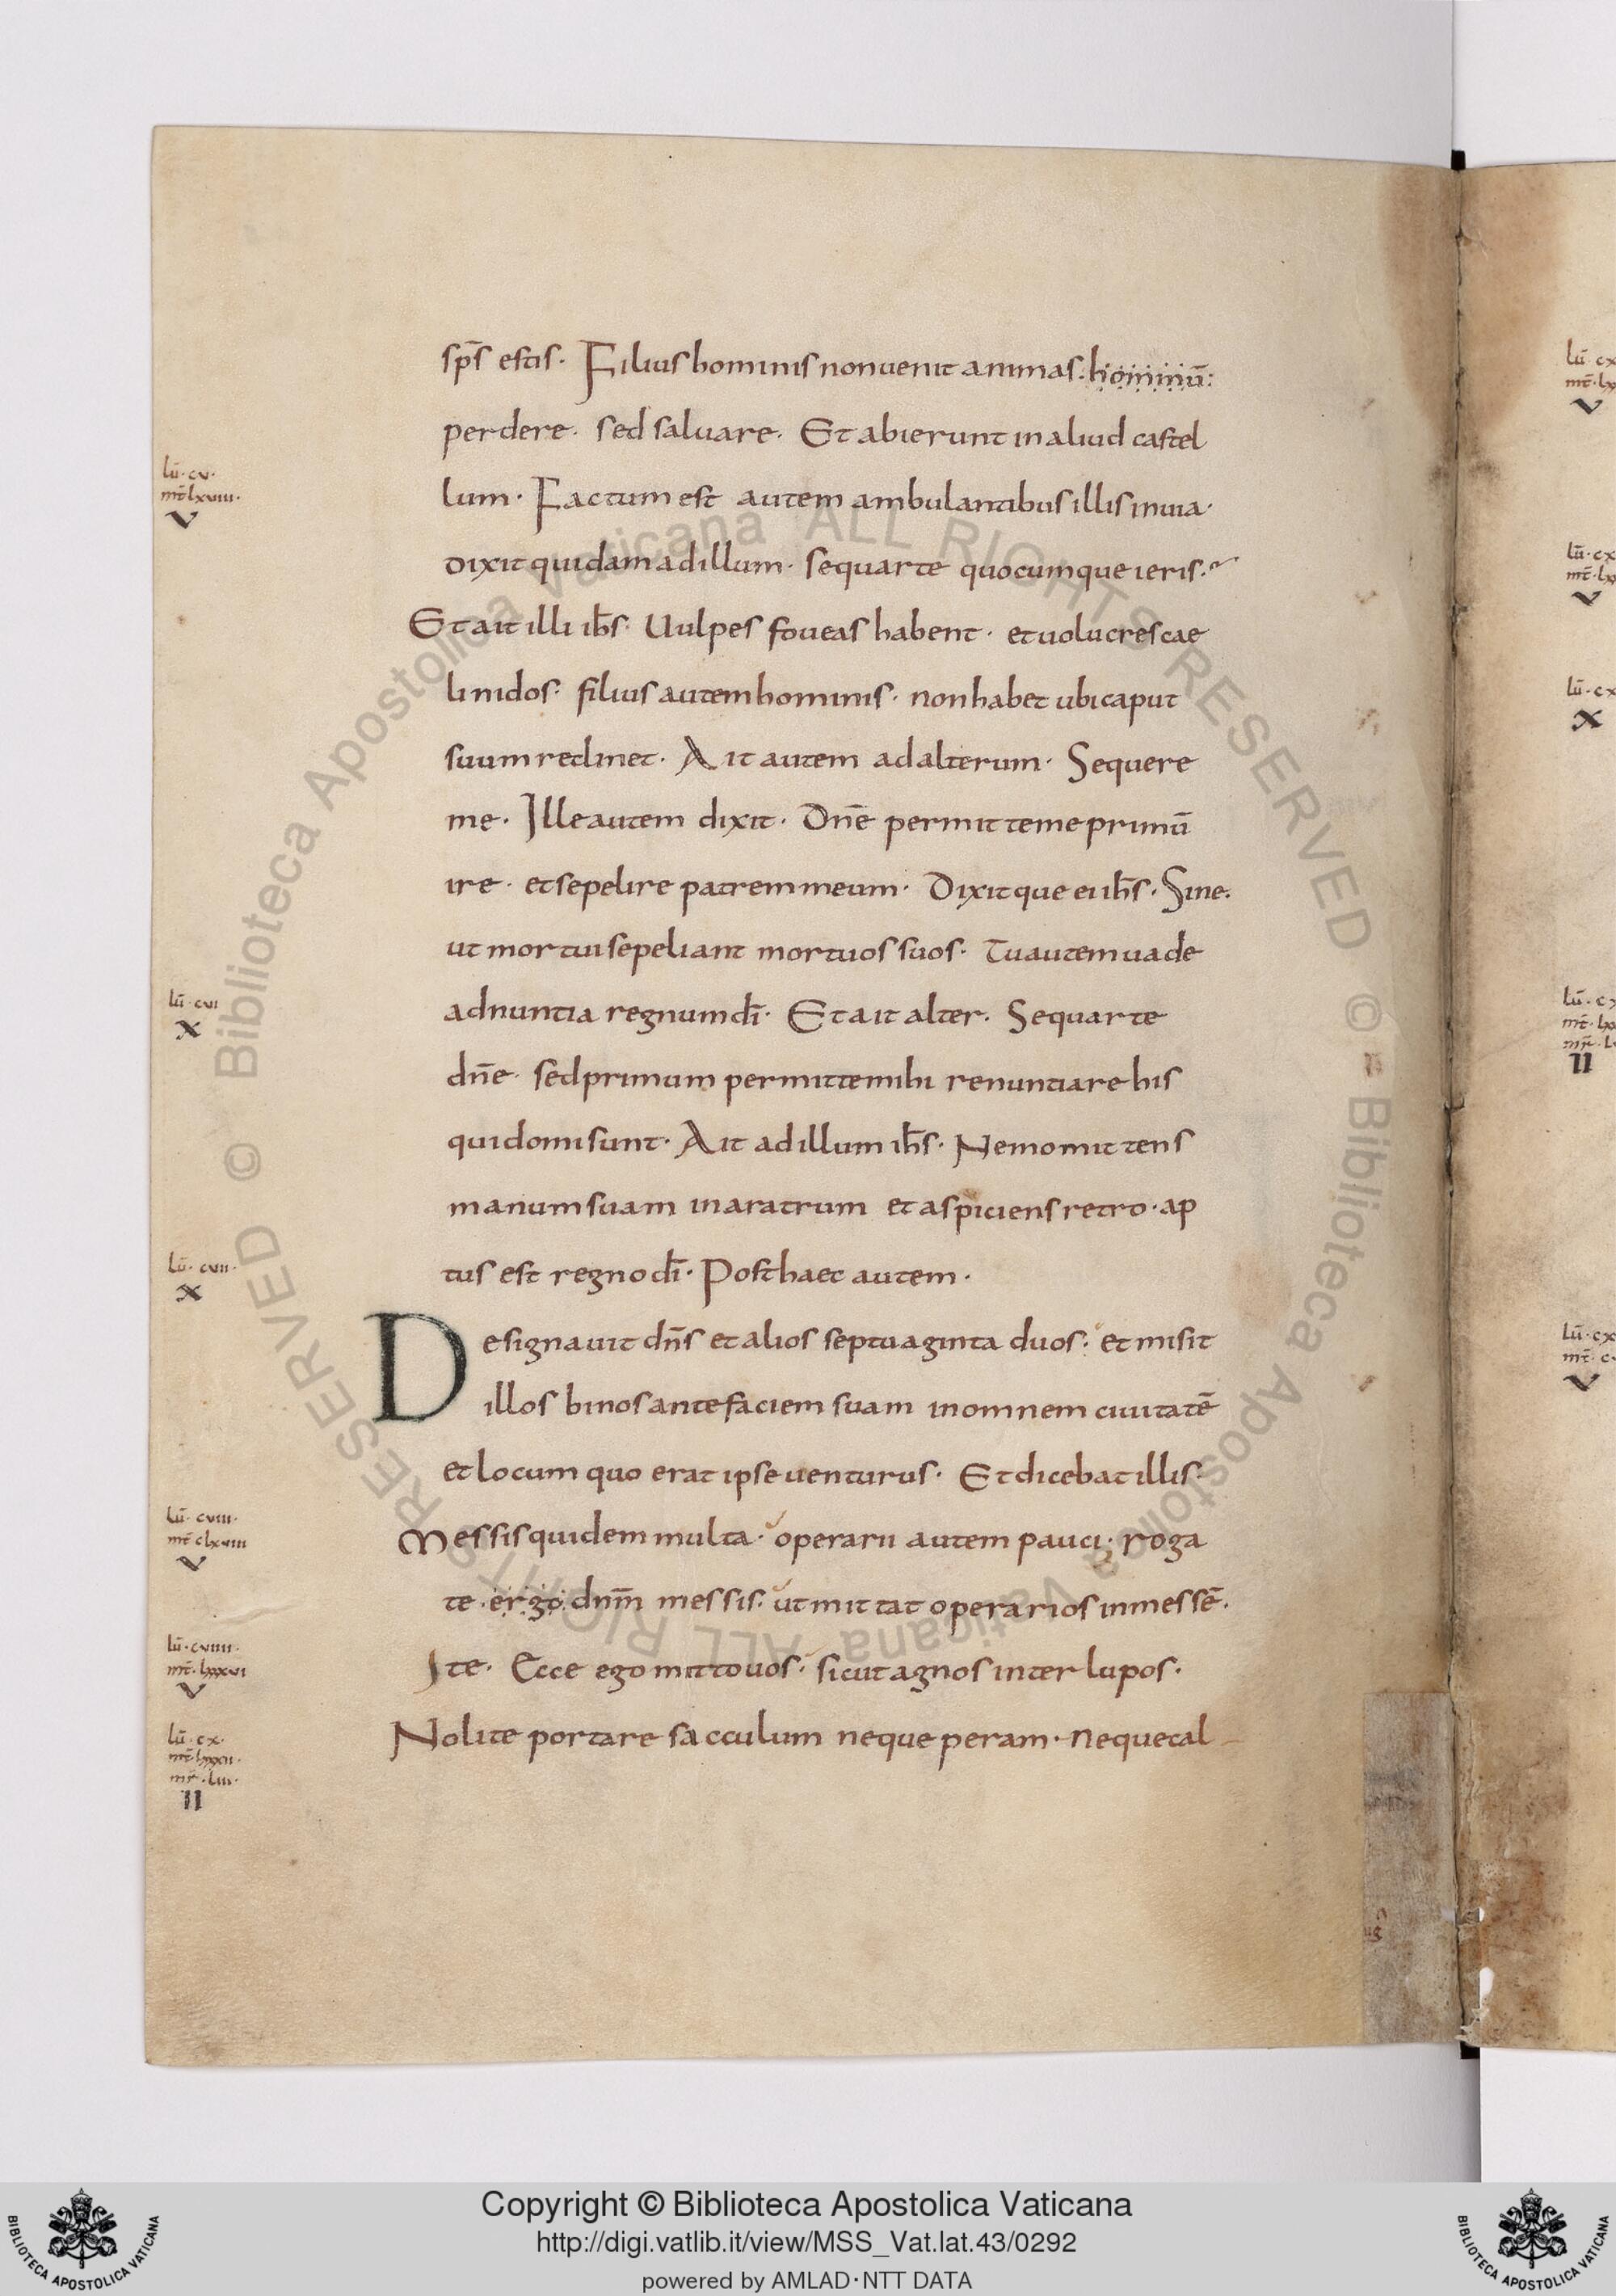 sp̄s estis· Filius hominis non uenit animas· hominū:
perdere· sed saluare· Et abierunt in aliud castel
lum· Factum est autem ambulantibus illis in uia·
dixit quidam ad illum· sequar te quocumque ieris·
Et ait illi ih̄s· Uulpes foueas habent· et uolucres cae
li nidos· filius autem hominis· non habet ubi caput
suum reclinet· Ait autem ad alterum· Sequere
me· Ille autem dixit· Dn̄e permitte me primū
ire· et sepelire patrem meum· Dixitque ei ih̄s· Sine·
ut mortui sepeliant mortuos suos· Tu autem uade
adnuntia regnum dī· Et ait alter· Sequar te
dn̄e· sed primum permitte mihi renuntiare his
qui domi sunt· Ait ad illum ih̄s· Nemo mittens
manum suam in aratrum et aspiciens retro· ap
tus est regno dī· Post haec autem·
Designauit dn̄s et alios septuaginta duos· et misit
illos binos ante faciem suam in omnem ciuitatē
et locum quo erat ipse uenturus· Et dicebat illis·
Messis quidem multa· operarii autem pauci· roga
te· ergo dnm̄ messis· ut mittat operarios in messē·
Ite· Ecce ego mitto uos· sicut agnos inter lupos·
Nolite portare sacculum neque peram· neque cal
lū·cv·
mt̄ lxviii·
V
lū·cvi
X
lū·cvii·
X
lū·cviii·
mt̄ clxviii
V
lū·cviiii·
mt̄·lxxxvi
V
lū·cx·
mt̄·lxxxii·
mr̄·liii·
II
© Biblioteca Apostolica Vaticana ALL RIGHTS RESERVED
© Biblioteca Apostolica Vaticana ALL RIGHTS RESERVED
Copyright © Biblioteca Apostolica Vaticana
http://digi.vatlib.it/view/MSS_Vat.lat.43/0292
powered by AMLAD·NTT DATA
BIBLIOTECA APOSTOLICA VATICANA
BIBLIOTECA APOSTOLICA VATICANA